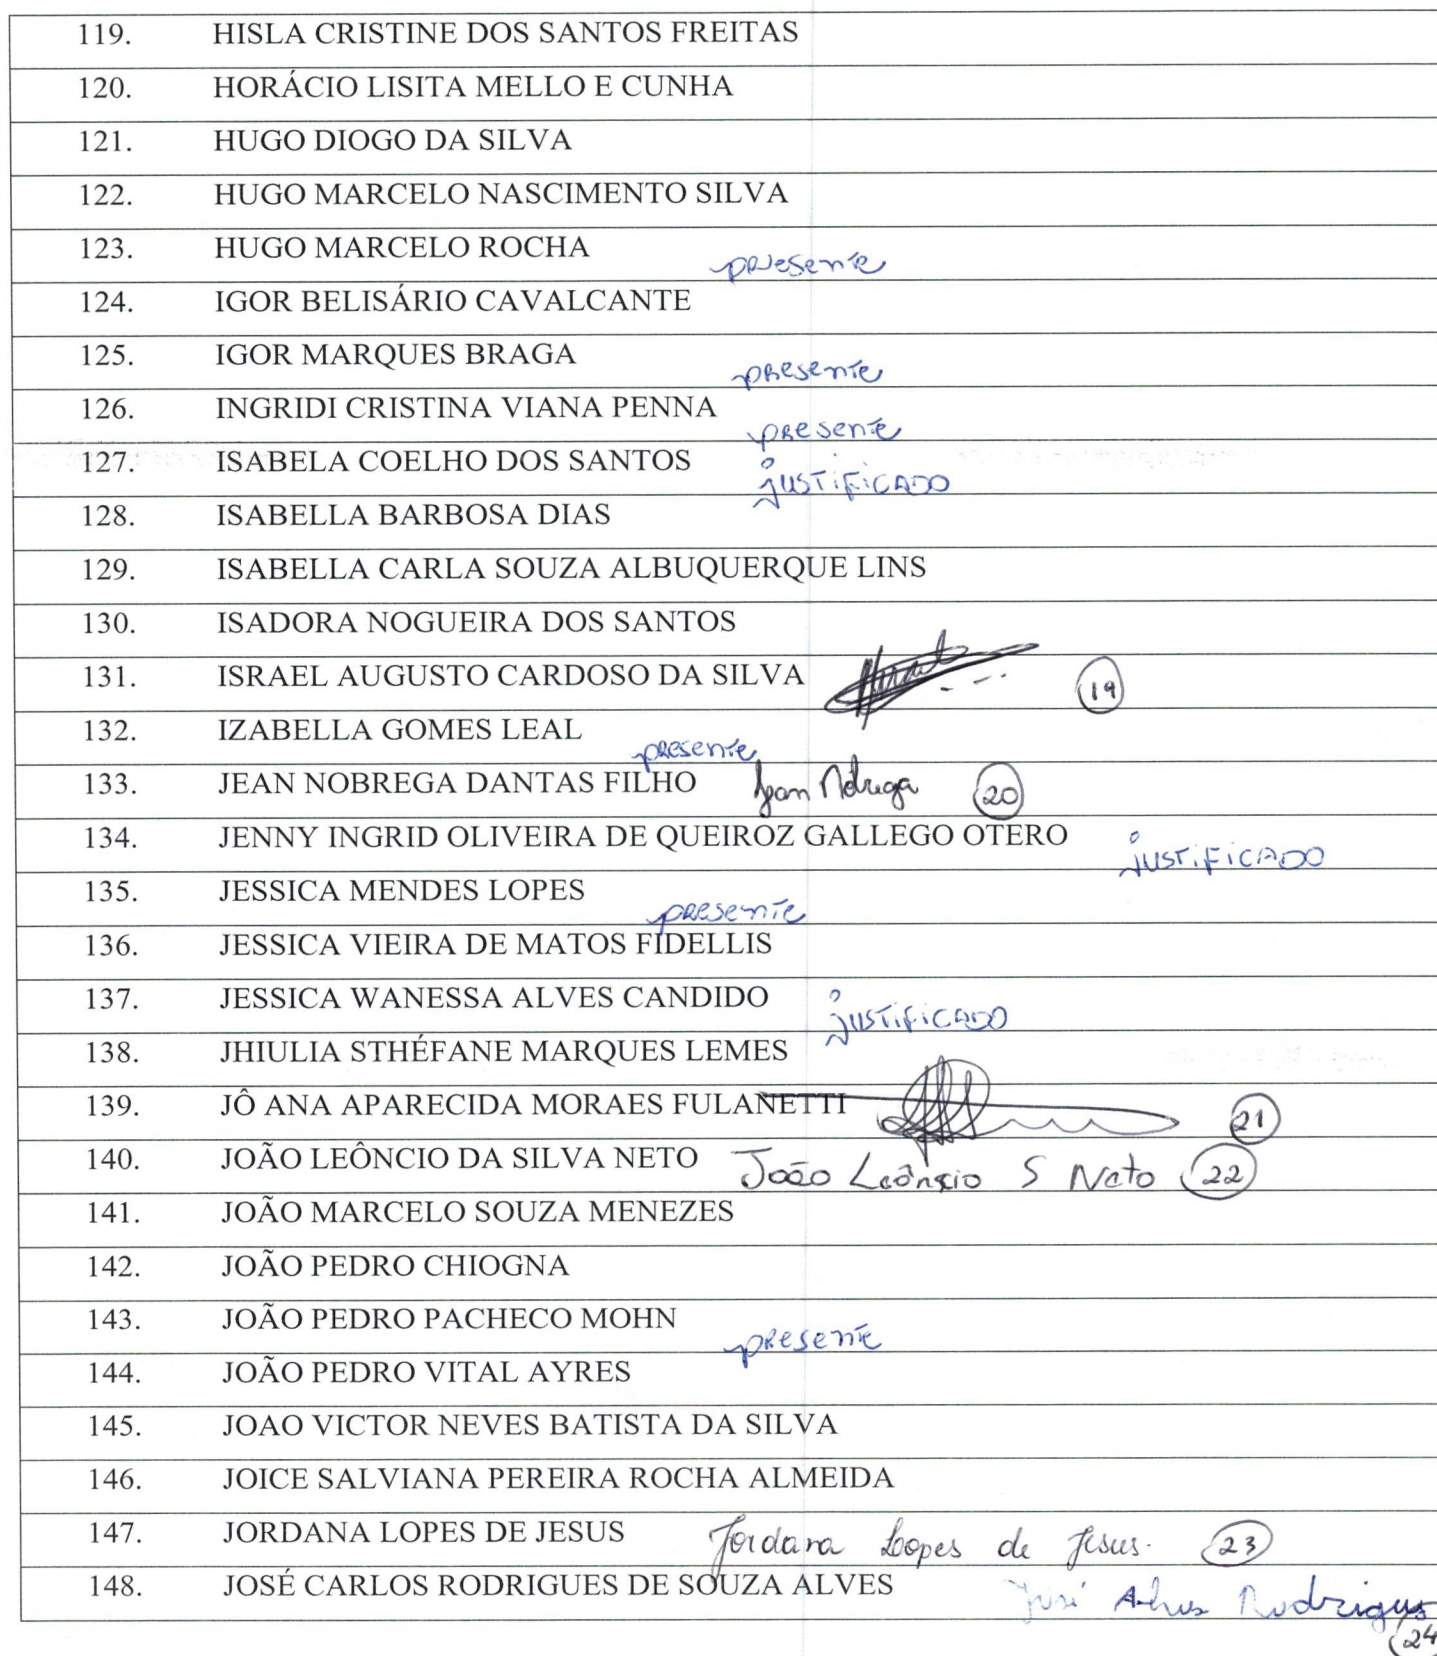 119. HISLA CRISTINE DOS SANTOS FREITAS
120. HORÁCIO LISITA MELLO E CUNHA
121. HUGO DIOGO DA SILVA
122. HUGO MARCELO NASCIMENTO SILVA
123. HUGO MARCELO ROCHA presente
124. IGOR BELISÁRIO CAVALCANTE
125. IGOR MARQUES BRAGA presente
126. INGRIDI CRISTINA VIANA PENNA presente
127. ISABELA COELHO DOS SANTOS justificado
128. ISABELLA BARBOSA DIAS
129. ISABELLA CARLA SOUZA ALBUQUERQUE LINS
130. ISADORA NOGUEIRA DOS SANTOS
131. ISRAEL AUGUSTO CARDOSO DA SILVA 19
132. IZABELLA GOMES LEAL presente
133. JEAN NOBREGA DANTAS FILHO Jean Nobrega 20
134. JENNY INGRID OLIVEIRA DE QUEIROZ GALLEGO OTERO justificado
135. JESSICA MENDES LOPES presente
136. JESSICA VIEIRA DE MATOS FIDELLIS
137. JESSICA WANESSA ALVES CANDIDO justificado
138. JHIULIA STHÉFANE MARQUES LEMES
139. JÔ ANA APARECIDA MORAES FULANETTI 21
140. JOÃO LEÔNCIO DA SILVA NETO João Leôncio S Neto 22
141. JOÃO MARCELO SOUZA MENEZES
142. JOÃO PEDRO CHIOGNA
143. JOÃO PEDRO PACHECO MOHN presente
144. JOÃO PEDRO VITAL AYRES
145. JOAO VICTOR NEVES BATISTA DA SILVA
146. JOICE SALVIANA PEREIRA ROCHA ALMEIDA
147. JORDANA LOPES DE JESUS Jordana Lopes de Jesus. 23
148. JOSÉ CARLOS RODRIGUES DE SOUZA ALVES José Alves Rodrigues
24